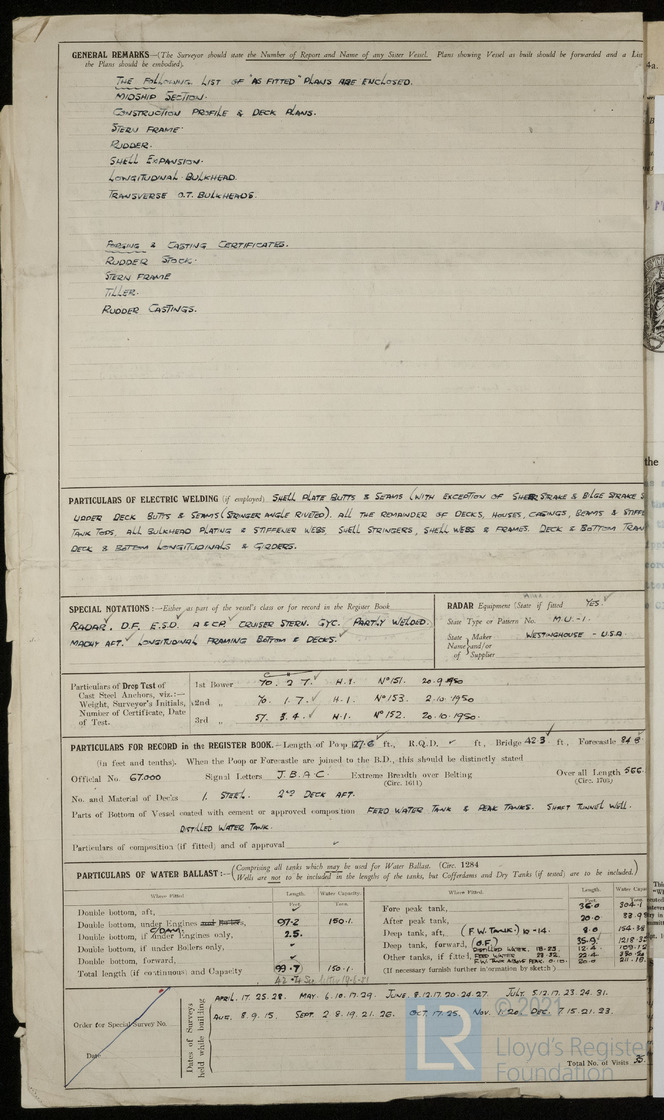 GENERAL REMARKS—(The Surveyor should state the Number of Report and Name of any Sister Vessel. Plans showing Vessel as built should be forwarded and a
the Plans should be embodied).
THE FOLLOWING LIST OF "AS FITTED" PLANS ARE ENCLOSED.
MIDSHIP SECTION.
CONSTRUCTION PROFILE & DECK PLANS.
STERN FRAME
RUDDER.
SHELL EXPANSION.
LONGITUDINAL BULKHEAD.
TRANSVERSE O.T. BULKHEADS.
FORGING & CASTING CERTIFICATES.
RUDDER STOCK.
STERN FRAME
TILLER.
RUDDER CASTINGS.
PARTICULARS OF ELECTRIC WELDING (if employed) SHELL PLATE BUTTS & SEAMS (WITH EXCEPTION OF SHEER STRAKE & BILGE STRAKE
UPPER DECK BUTTS & SEAMS (STRINGER ANGLE RIVETED). ALL THE REMAINDER OF DECKS, HOUSES, CASINGS, BEAMS &
TANK TOPS, ALL BULKHEAD PLATING & STIFFENER WEBS, SHELL STRINGERS, SHELL WEBS & FRAMES. DECK & BOTTOM
DECK & BOTTOM LONGITUDINALS & GIRDERS.
SPECIAL NOTATIONS:—Either as part of the vessel's class or for record in the Register Book
RADAR. D.F. E.S.D. A & C.P. CRUISER STERN. GYC. PARTLY WELDED.
MACHY AFT. LONGITUDINAL FRAMING BOTTOM & DECKS.
RADAR Equipment (State if fitted YES.
State Type or Pattern No. M.U.-1.
State Maker WESTINGHOUSE - U.S.A
Name and/or
of Supplier
Particulars of Drop Test of
Cast Steel Anchors, viz.:—
Weight, Surveyor's Initials,
Number of Certificate, Date
of Test.
1st Bower 70. 2 7. H.I. No 151. 20.9.1950
2nd „ 70. 1. 7. H.I. No 153. 2.10.1950
3rd „ 57. 3. 4. H.I. No 152. 20.10.1950.
PARTICULARS FOR RECORD in the REGISTER BOOK.—Length of Poop 127.6 ft., R.Q.D. ft., Bridge 42.3 ft., Forecastle
(in feet and tenths). When the Poop or Forecastle are joined to the B.D., this should be distinctly stated
Official No. 67000 Signal Letters J.B.A.C. Extreme Breadth over Belting Over all Length 566.
(Circ. 1611) (Circ. 1703)
No. and Material of Decks 1. STEEL. 2ND DECK AFT.
Parts of Bottom of Vessel coated with cement or approved composition FEED WATER TANK & PEAK TANKS. SHAFT TUNNEL WELL.
DISTILLED WATER TANK.
Particulars of composition (if fitted) and of approval
PARTICULARS OF WATER BALLAST:—(Comprising all tanks which may be used for Water Ballast. (Circ. 1284
Wells are not to be included in the lengths of the tanks, but Cofferdams and Dry Tanks (if tested) are to be included.)
Where Fitted. Length. Water Capacity.
Feet. Tons
Double bottom, aft,
Double bottom, under Engines and Boilers, 97.2 150.1.
C/DAM.
Double bottom, if under Engines only, 2.5.
Double bottom, if under Boilers only,
Double bottom, forward,
Total length (if continuous) and Capacity 99.7 150.1
Where Fitted. Length.
Fore peak tank, 35.0 304.1
After peak tank, 20.0
Deep tank, aft, (F.W. TANK.) 10-14. 8.0 154.38
Deep tank, forward, (O.F.) 35.9
DISTILLED WATER. 18-23. 12.4
Other tanks, if fitted, FEED WATER 22.4
F.W. TANK ABOVE PEAK. 0-10. 20.0
(If necessary furnish further information by sketch)
Order for Special Survey No.
Date
Dates of Surveys
held while building
APRIL. 17. 25. 28. MAY. 6. 10. 17. 29. JUNE. 8. 12. 17. 20. 24. 27. JULY. 5. 12. 17. 23. 24. 31.
AUG. 8. 9. 15. SEPT. 2 8. 19. 21. 26. OCT. 17. 25. NOV. 1. 20. DEC. 7. 15. 21. 23.
Total No. of Visits 35.
© 2021
LR
Lloyd's Register
Foundation